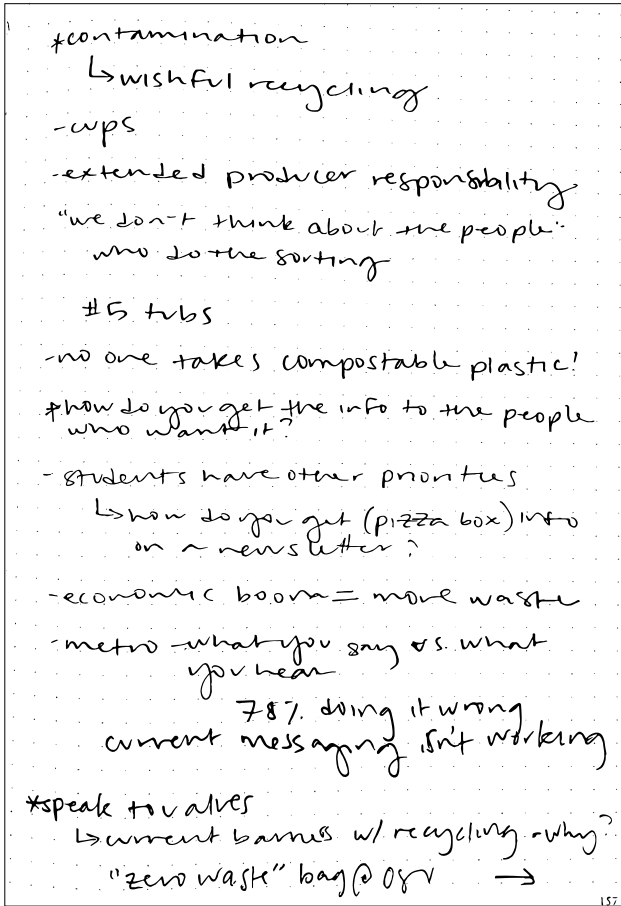 *contamination
↳wishful recycling
-cups
-extended producer responsibility
"we don't think about the people"
who do the sorting
#5 tubs
-no one takes compostable plastic!
*how do you get the info to the people
who want it?
- students have other priorities
↳how do you get (pizza box) info
on a newsletter?
-economic boom = more waste
-metro -what you say vs. what
you hear
78% doing it wrong
current messaging isn't working
*speak to values
↳current barriers w/ recycling -why?
"zero waste" bag @ OSU →
157